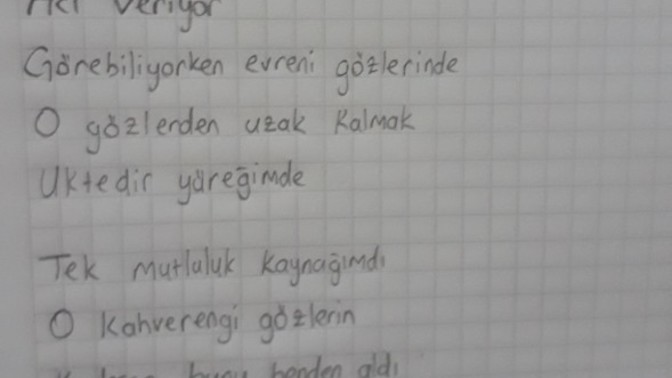 Acı veriyor
Görebiliyorken evreni gözlerinde
O gözlerden uzak kalmak
Uktedir yüreğimde
Tek mutluluk kaynağımdı
O kahverengi gözlerin
bunu benden aldı